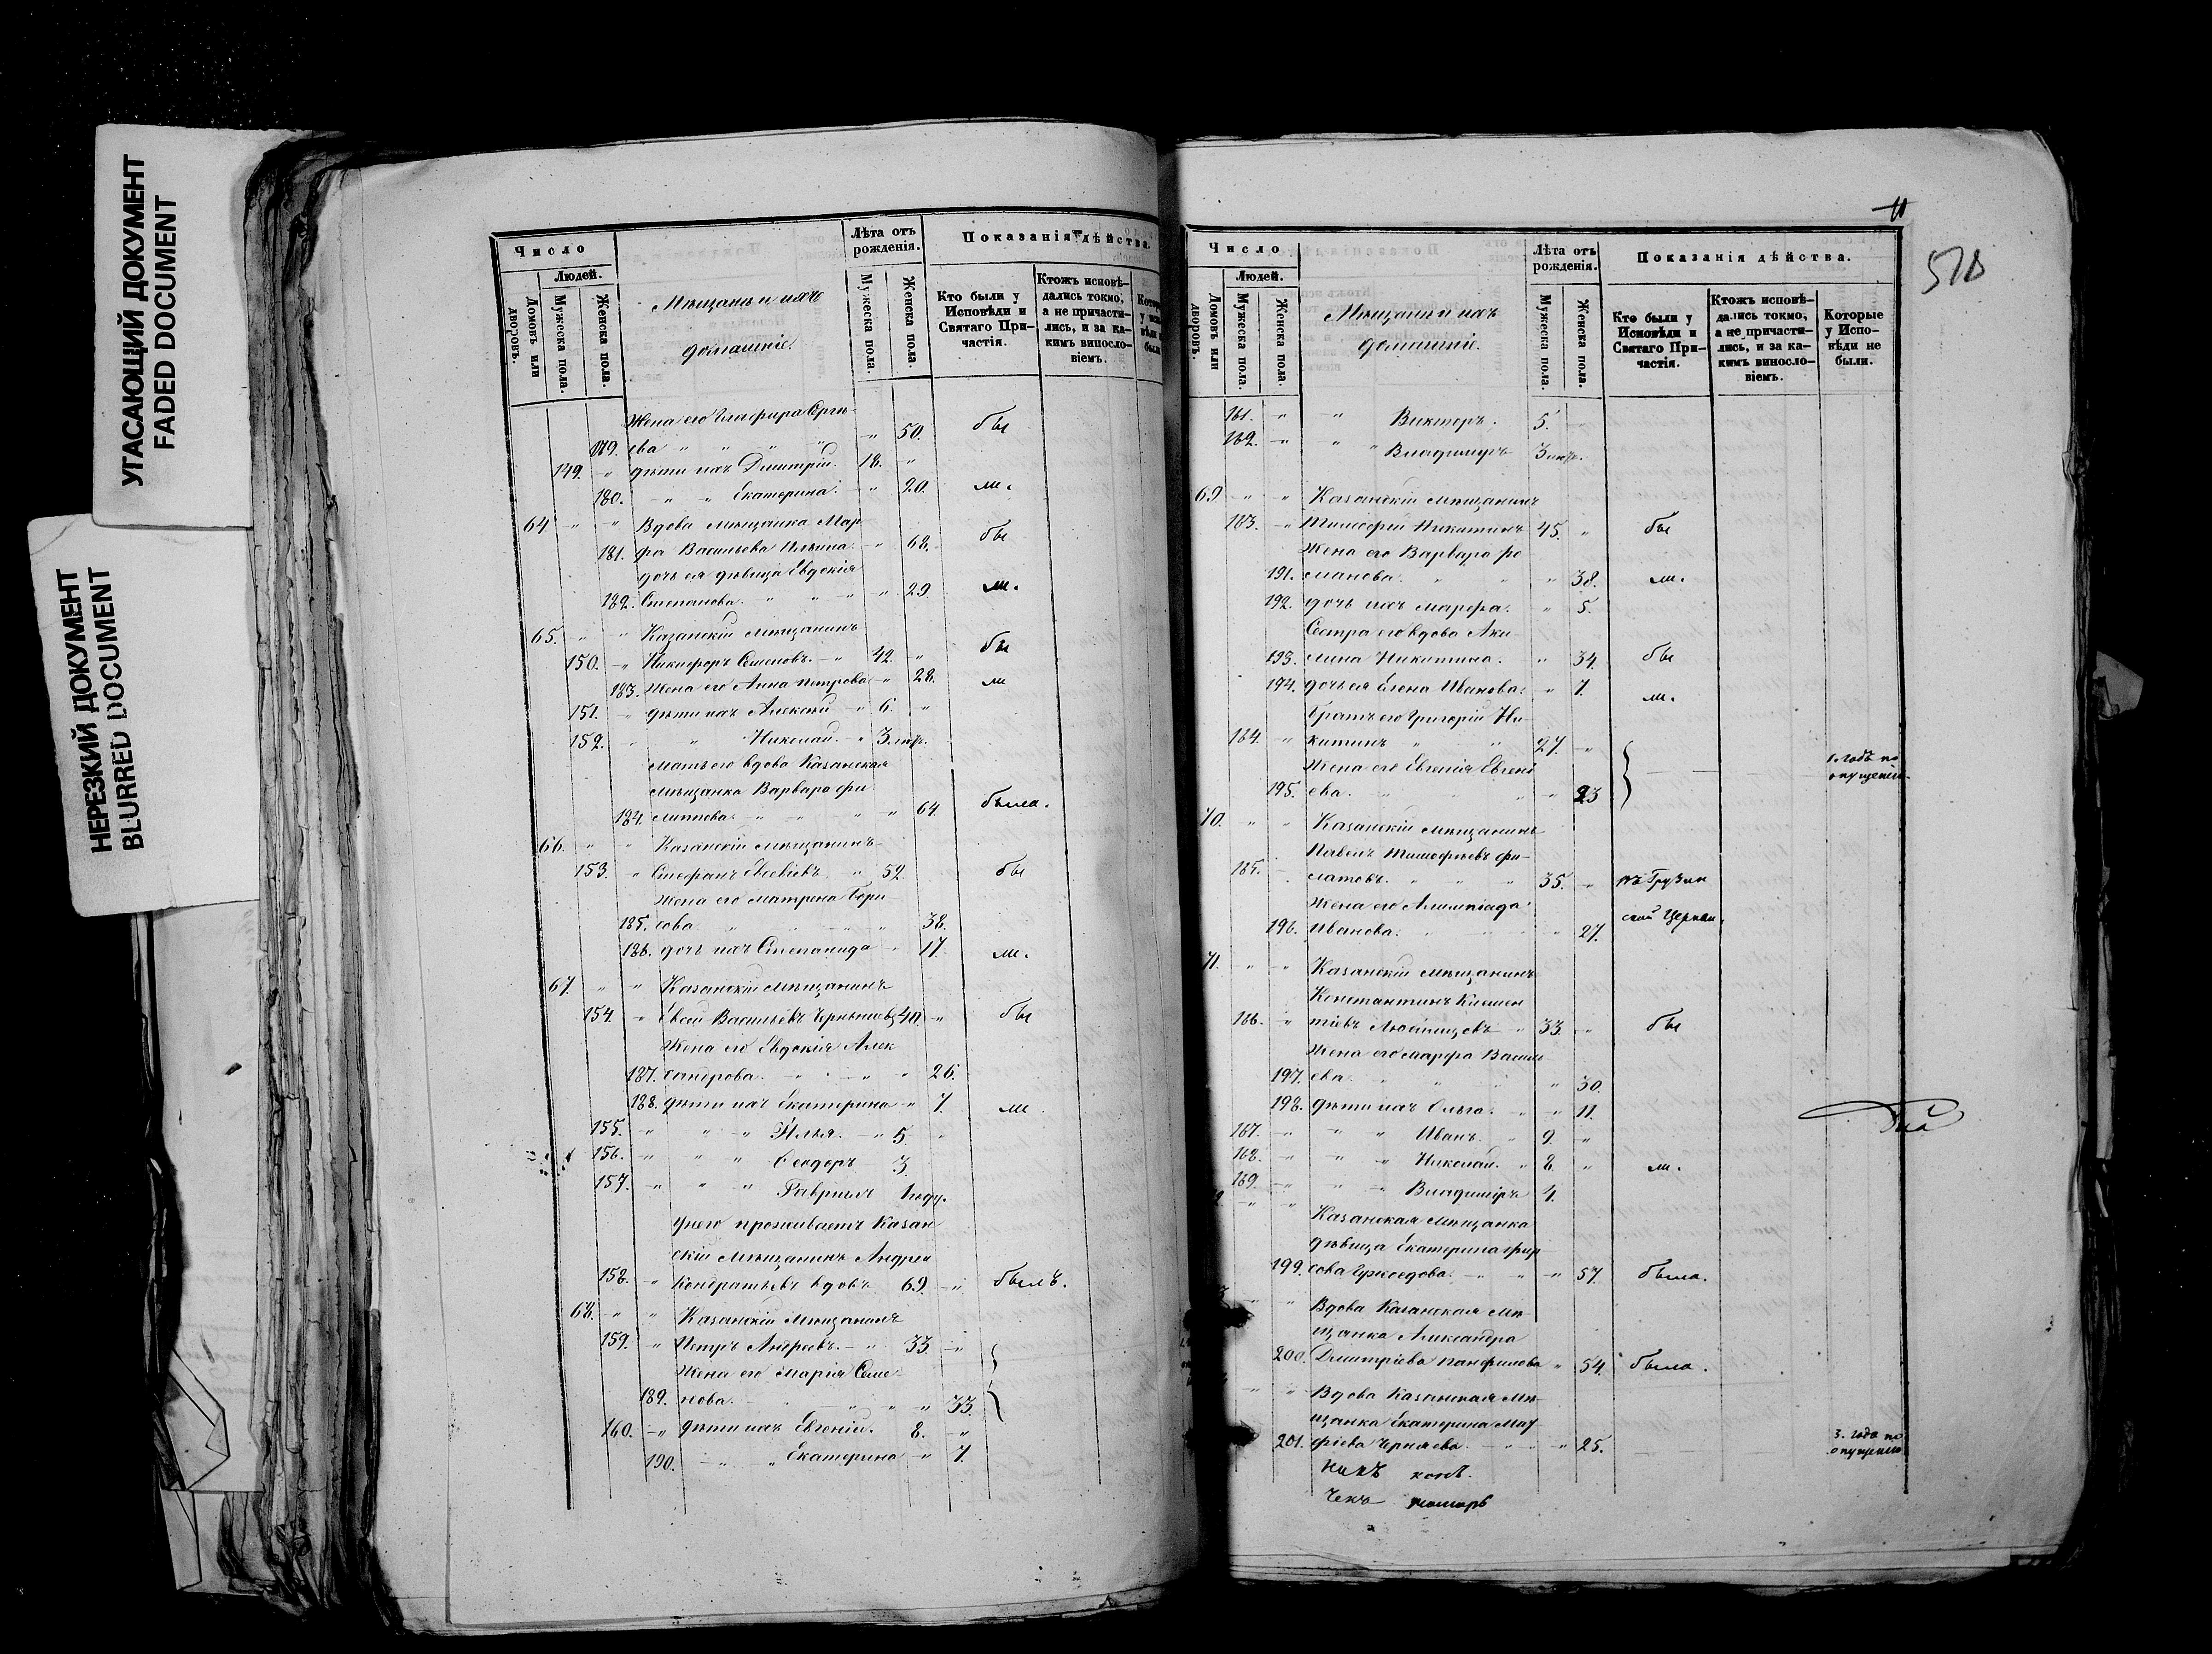 УГАСАЮЩИЙ ДОКУМЕНТ
FADED DOCUMENT
НЕРЕЗКИЙ ДОКУМЕНТ
BLURRED DOCUMENT
Число
Людей.
Домовъ или дворовъ.
Мужеска пола.
Женска пола.
Мѣщане и ихъ
домашніе.
Лѣта отъ рожденія.
Мужеска пола.
Женска пола.
Показанія дѣйства.
Кто были у Исповѣди и Святаго Причастія.
Ктожъ исповѣдались токмо, а не причастились, и за какимъ винословіемъ.
Жена его Глафира Серги-
179. ева " " " " " 50. бы
149. " дѣти ихъ Дмитрій. 18. "
180. " " Екатерина. " 20. ли.
64 " " Вдова мѣщанка Мар
181. фа Васильева Ильина " 68. бы
дочь ея дѣвица Евдокія
182. Степанова. " " " " 29. ли.
65. " " Казанскій мѣщанинъ
150. " Никифоръ Семеновъ. " 42. " бы
183. Жена его Анна Петрова " 28. ли
151. " дѣти ихъ Алексѣй " 6. "
152. " " Николай. " 3. мѣс.
Мать его вдова Казанская
мѣщанка Варвара Фи
184. липпова. " " " " 64. была.
66. " " Казанскій мѣщанинъ
153. " Стефанъ Евсевіевъ. " 52. бы
Жена его Матрена Бори
185. сова " " " " 38.
186. дочь ихъ Степанида " 17. ли.
67. " " Казанскій мѣщанинъ
154. " Евсей Васильевъ Чернышевъ 40. " бы
Жена его Евдокія Алек
187. сандрова. " " " " 26.
188. дѣти ихъ Екатерина " 7. ли
155. " " " Илья. " 5. "
156. " " " Феодоръ 3.
157. " " " Гавріилъ 1 году.
У него проживаетъ Казан
скій мѣщанинъ Андрей
158. " Кондратьевъ вдовъ 69. " былъ.
68. " " Казанскій мѣщанинъ
159. " Петръ Андреевъ. " 33. "
Жена его Марія Семе
189. нова. " " " " 33.
160. " дѣти ихъ Евгеній. 8. "
190. " " Екатерина " 7.
11
510
Число
Людей.
Домовъ или дворовъ.
Мужеска пола.
Женска пола.
Мѣщане и ихъ
домашніе.
Лѣта отъ рожденія.
Мужеска пола.
Женска пола.
Показанія дѣйства.
Кто были у Исповѣди и Святаго Причастія.
Ктожъ исповѣдались токмо, а не причастились, и за какимъ винословіемъ.
Которые у Исповѣди не были.
161. " " Викторъ. 5. "
162. " " " Владимиръ 3 мѣс.
69. " " Казанскій мѣщанинъ
163. " Тимофей Никитинъ 45. " бы
Жена его Варвара Ро
191. манова. " " " 38. ли.
192. дочь ихъ Марфа. " 5.
Сестра его вдова Аку-
193. лина Никитина. " 34. бы
194. дочь ея Елена Иванова. " 7. ли.
Братъ его Григорій Ни-
164. " китинъ " " 27. " 1. годъ по
Жена его Евгенія Евгені опущенію.
195. ева. " " " " 23
70. " " Казанскій мѣщанинъ
Павелъ Тимофеевъ Фи-
165. " латовъ. " " " 35. " въ Грузин
Жена его Алимпіада ской Церкви.
196. Иванова. " " " " 27.
71. " " Казанскій мѣщанинъ
Константинъ Клемен
166. " тіевъ " 33. " бы
Жена его Марфа Василь
197. ева. " " " " 30.
198. дѣти ихъ Ольга. " " 11.
167. " " " Иванъ. " 9. "
168. " " " Николай. " 8. " ли.
169. " " " Владиміръ 4.
" " Казанская мѣщанка
дѣвица Екатерина Фир
199. сова " " " 57. была.
" " Вдова Казанская мѣ-
щанка Александра
200. Дмитріева Панфилова " 54. была.
" " Вдова Казанская мѣ-
щанка Екатерина Мат
201. фіева Черняева. " " " 25. 3. года по
опущенію